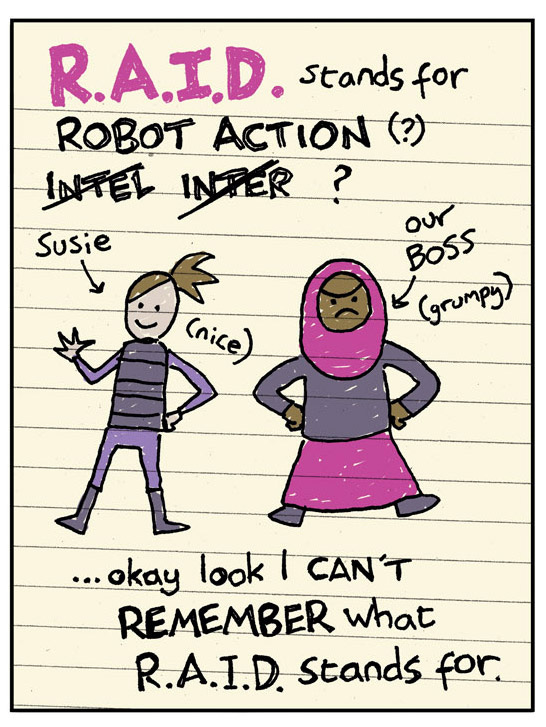 R.A.I.D. stands for
ROBOT ACTION (?)
INTEL INTER ?
Susie
(nice)
our
BOSS
(grumpy)
...okay look I CAN'T
REMEMBER what
R.A.I.D. stands for.